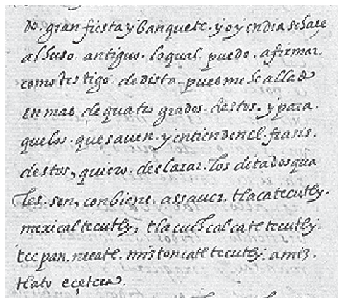 do. gran fiesta y banquete. y oy en dia se haçe
al huso. antiguo. loqual. puedo. afirmar.
como testigo. de vista. pues me e allado
en mas. de quatro grados. destos. y para
que los. que saven. y entienden el. frasis.
destos, quiero. declarar. los ditados qua
les. son, conbiene. assaver. tlacatecutly.
mexicaltecutly,
tecpan. mistoncatltecutly. amis.
tlato ecetera